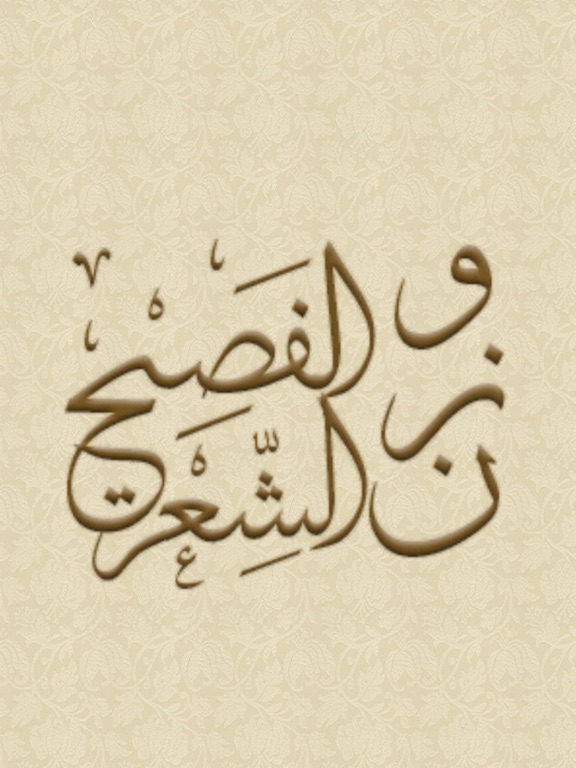 وزن الشِّعر الفَصيح